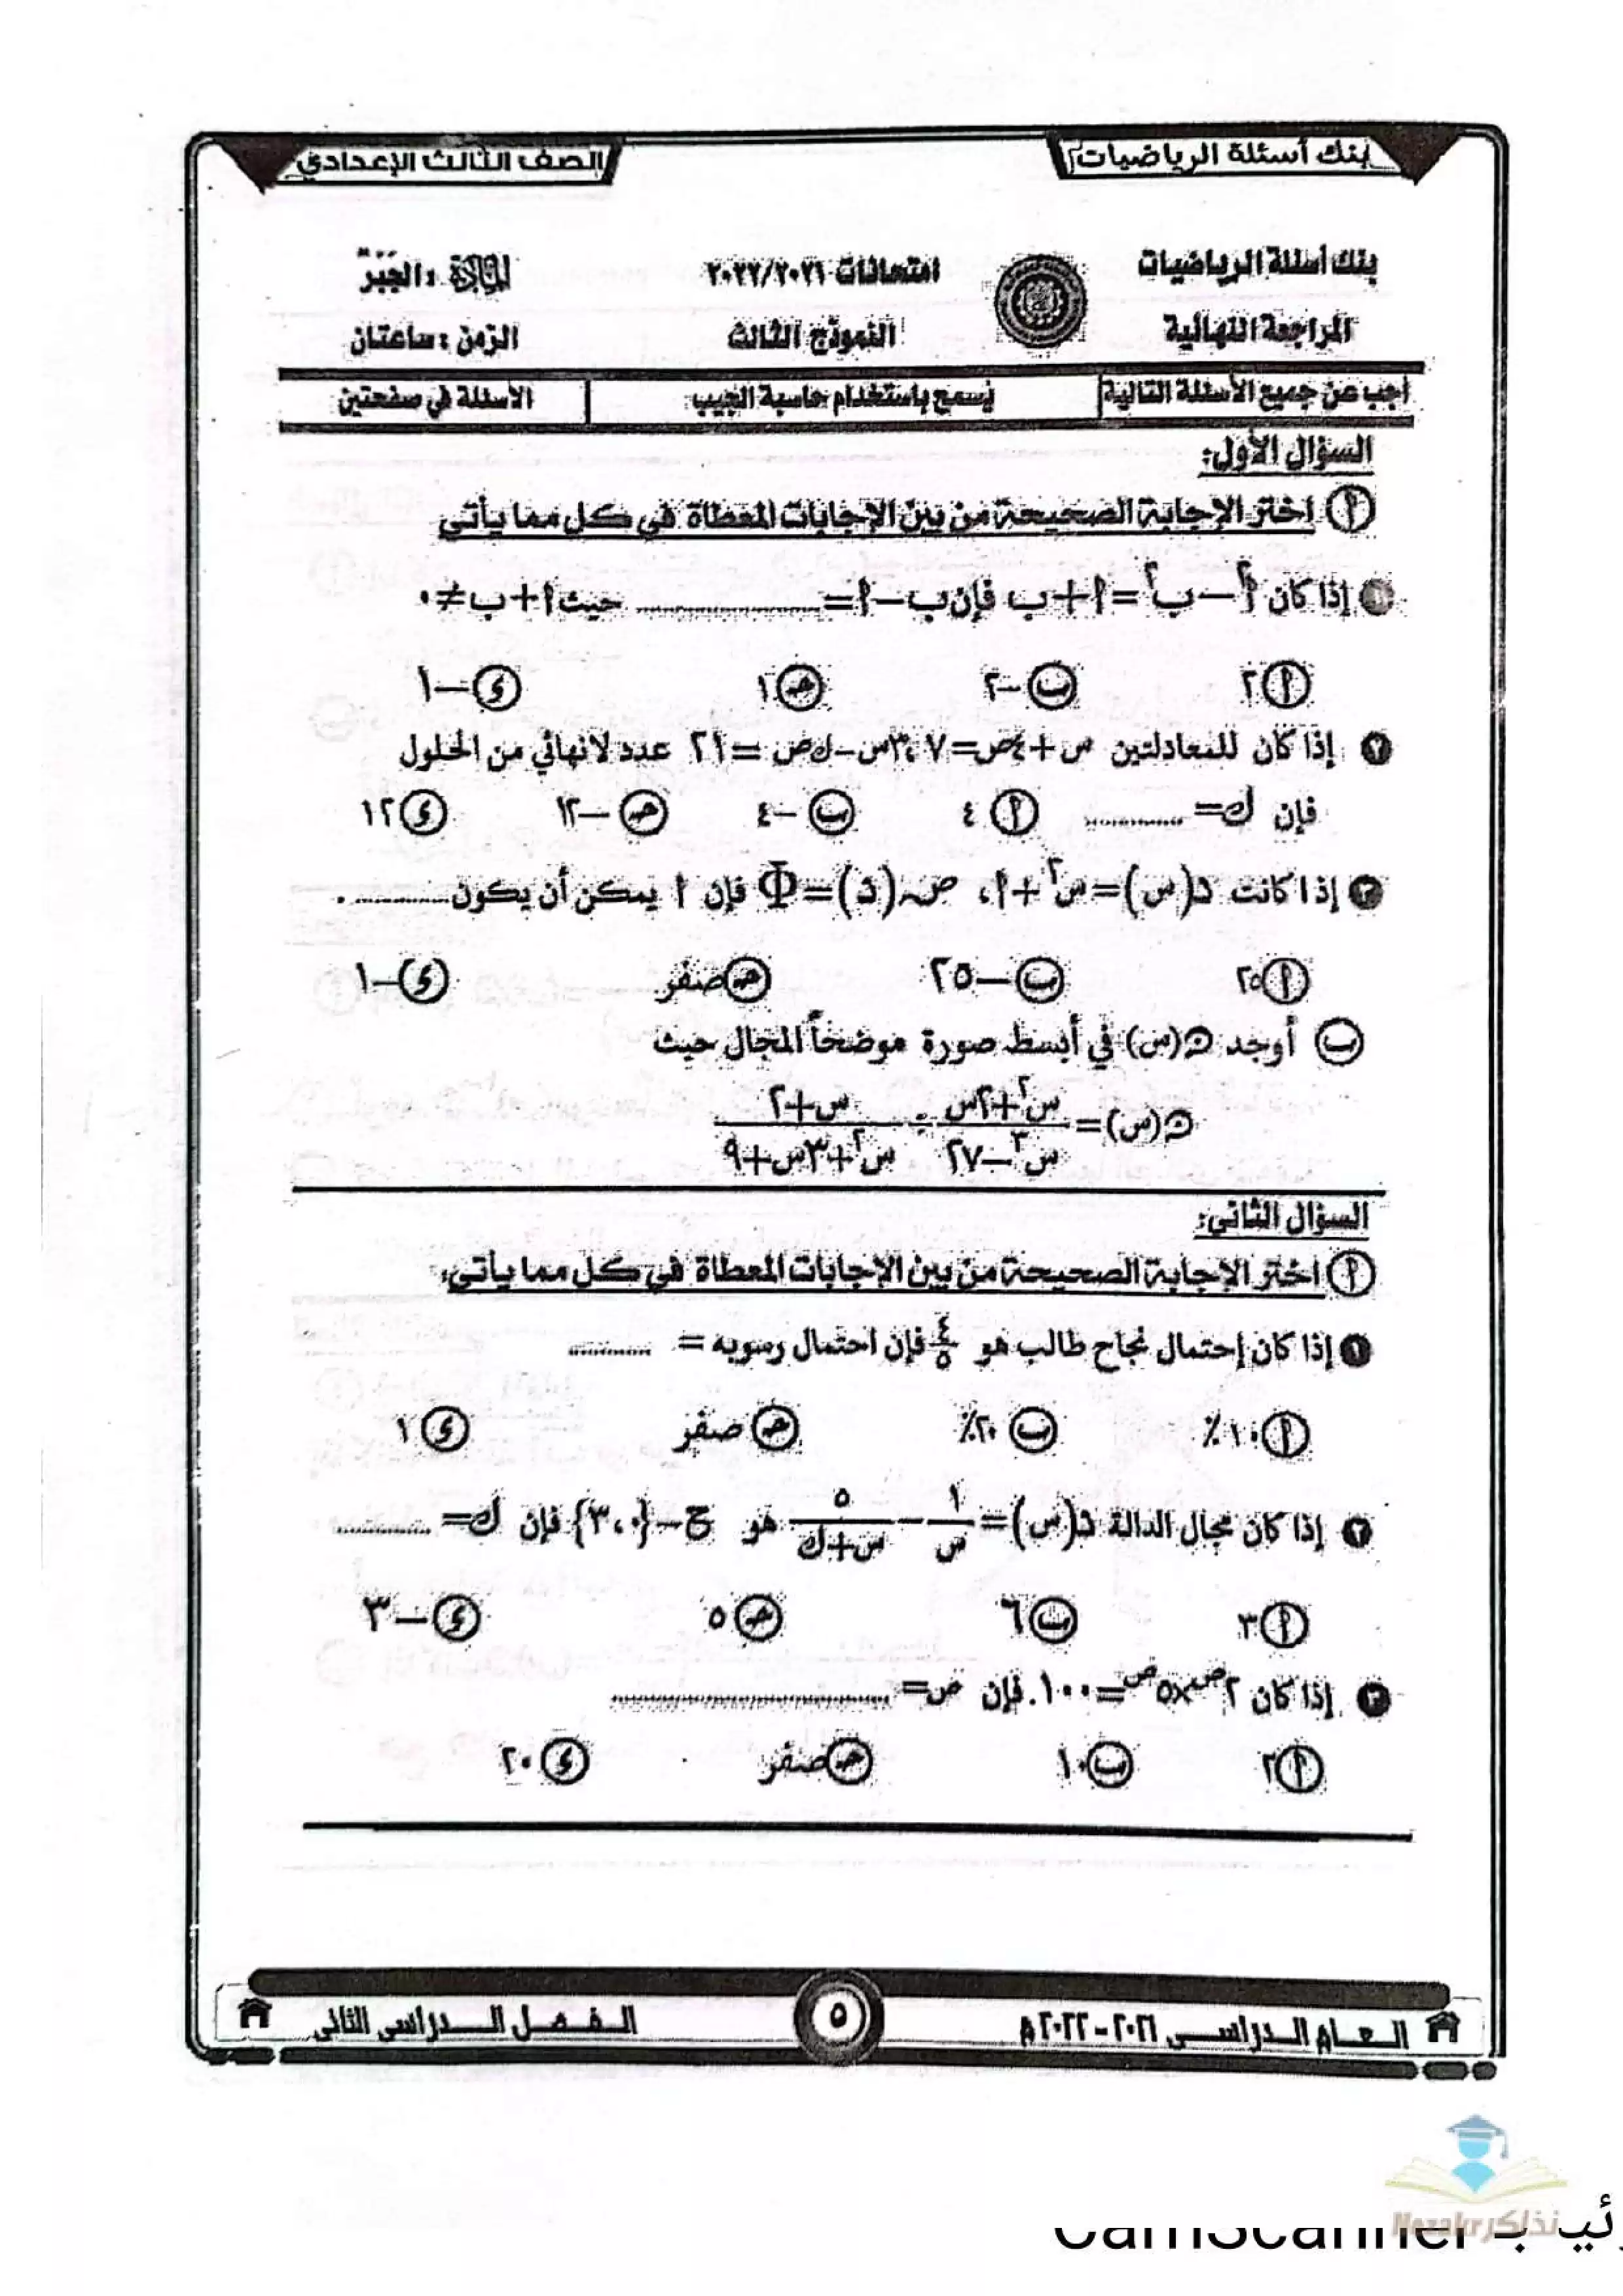 بنك أسئلة الرياضيات
الصف الثالث الإعدادي
بنك أسئلة الرياضيات امتحانات ٢٠٢١/٢٠٢٢ المادة : الجَبْرُ
المراجعة النهائية النموذج الثالث الزمن : ساعتان
أجب عن جميع الأسئلة التالية يُسمح باستخدام حاسبة الجيب الأسئلة في صفحتين
السؤال الأول:
(أ) اختر الإجابة الصحيحة من بين الإجابات المعطاة في كل مما يأتي
١ إذا كان أ² − ب² = أ + ب فإن ب − أ = .................. حيث أ + ب ≠ ٠
(أ) ٢ (ب) −٢ (ج) ١ (د) −١
٢ إذا كان للمعادلتين س + ٤ص = ٧ ، ٣س − ك ص = ٢١ عدد لانهائي من الحلول
فإن ك = ............ (أ) ٤ (ب) −٤ (ج) −١٢ (د) ١٢
٣ إذا كانت د(س) = س² + أ ، ص(د) = Φ فإن أ يمكن أن يكون ............ .
(أ) ٢٥ (ب) −٢٥ (ج) صفر (د) −١
(ب) أوجد ن(س) في أبسط صورة موضحاً المجال حيث
ن(س) = (س² + ٢س)/(س³ − ٢٧) ÷ (س + ٢)/(س² + ٣س + ٩)
السؤال الثاني:
(أ) اختر الإجابة الصحيحة من بين الإجابات المعطاة في كل مما يأتي:
١ إذا كان إحتمال نجاح طالب هو ٤/٥ فإن احتمال رسوبه = ..........
(أ) ١٠٪ (ب) ٢٠٪ (ج) صفر (د) ١
٢ إذا كان مجال الدالة د(س) = ١/س − ٥/(س + ك) هو ح − {٠ ، ٣} فإن ك = ..........
(أ) ٣ (ب) ٦ (ج) ٥ (د) −٣
٣ إذا كان ٢^ص × ٥^ص = ١٠٠ . فإن ص = ..............................
(أ) ٢ (ب) ١٠ (ج) صفر (د) ٢٠
العام الدراسى ٢٠٢١ - ٢٠٢٢م ٥ الفصل الدراسى الثانى
نذاكر Nezakr
CamScanner بـ